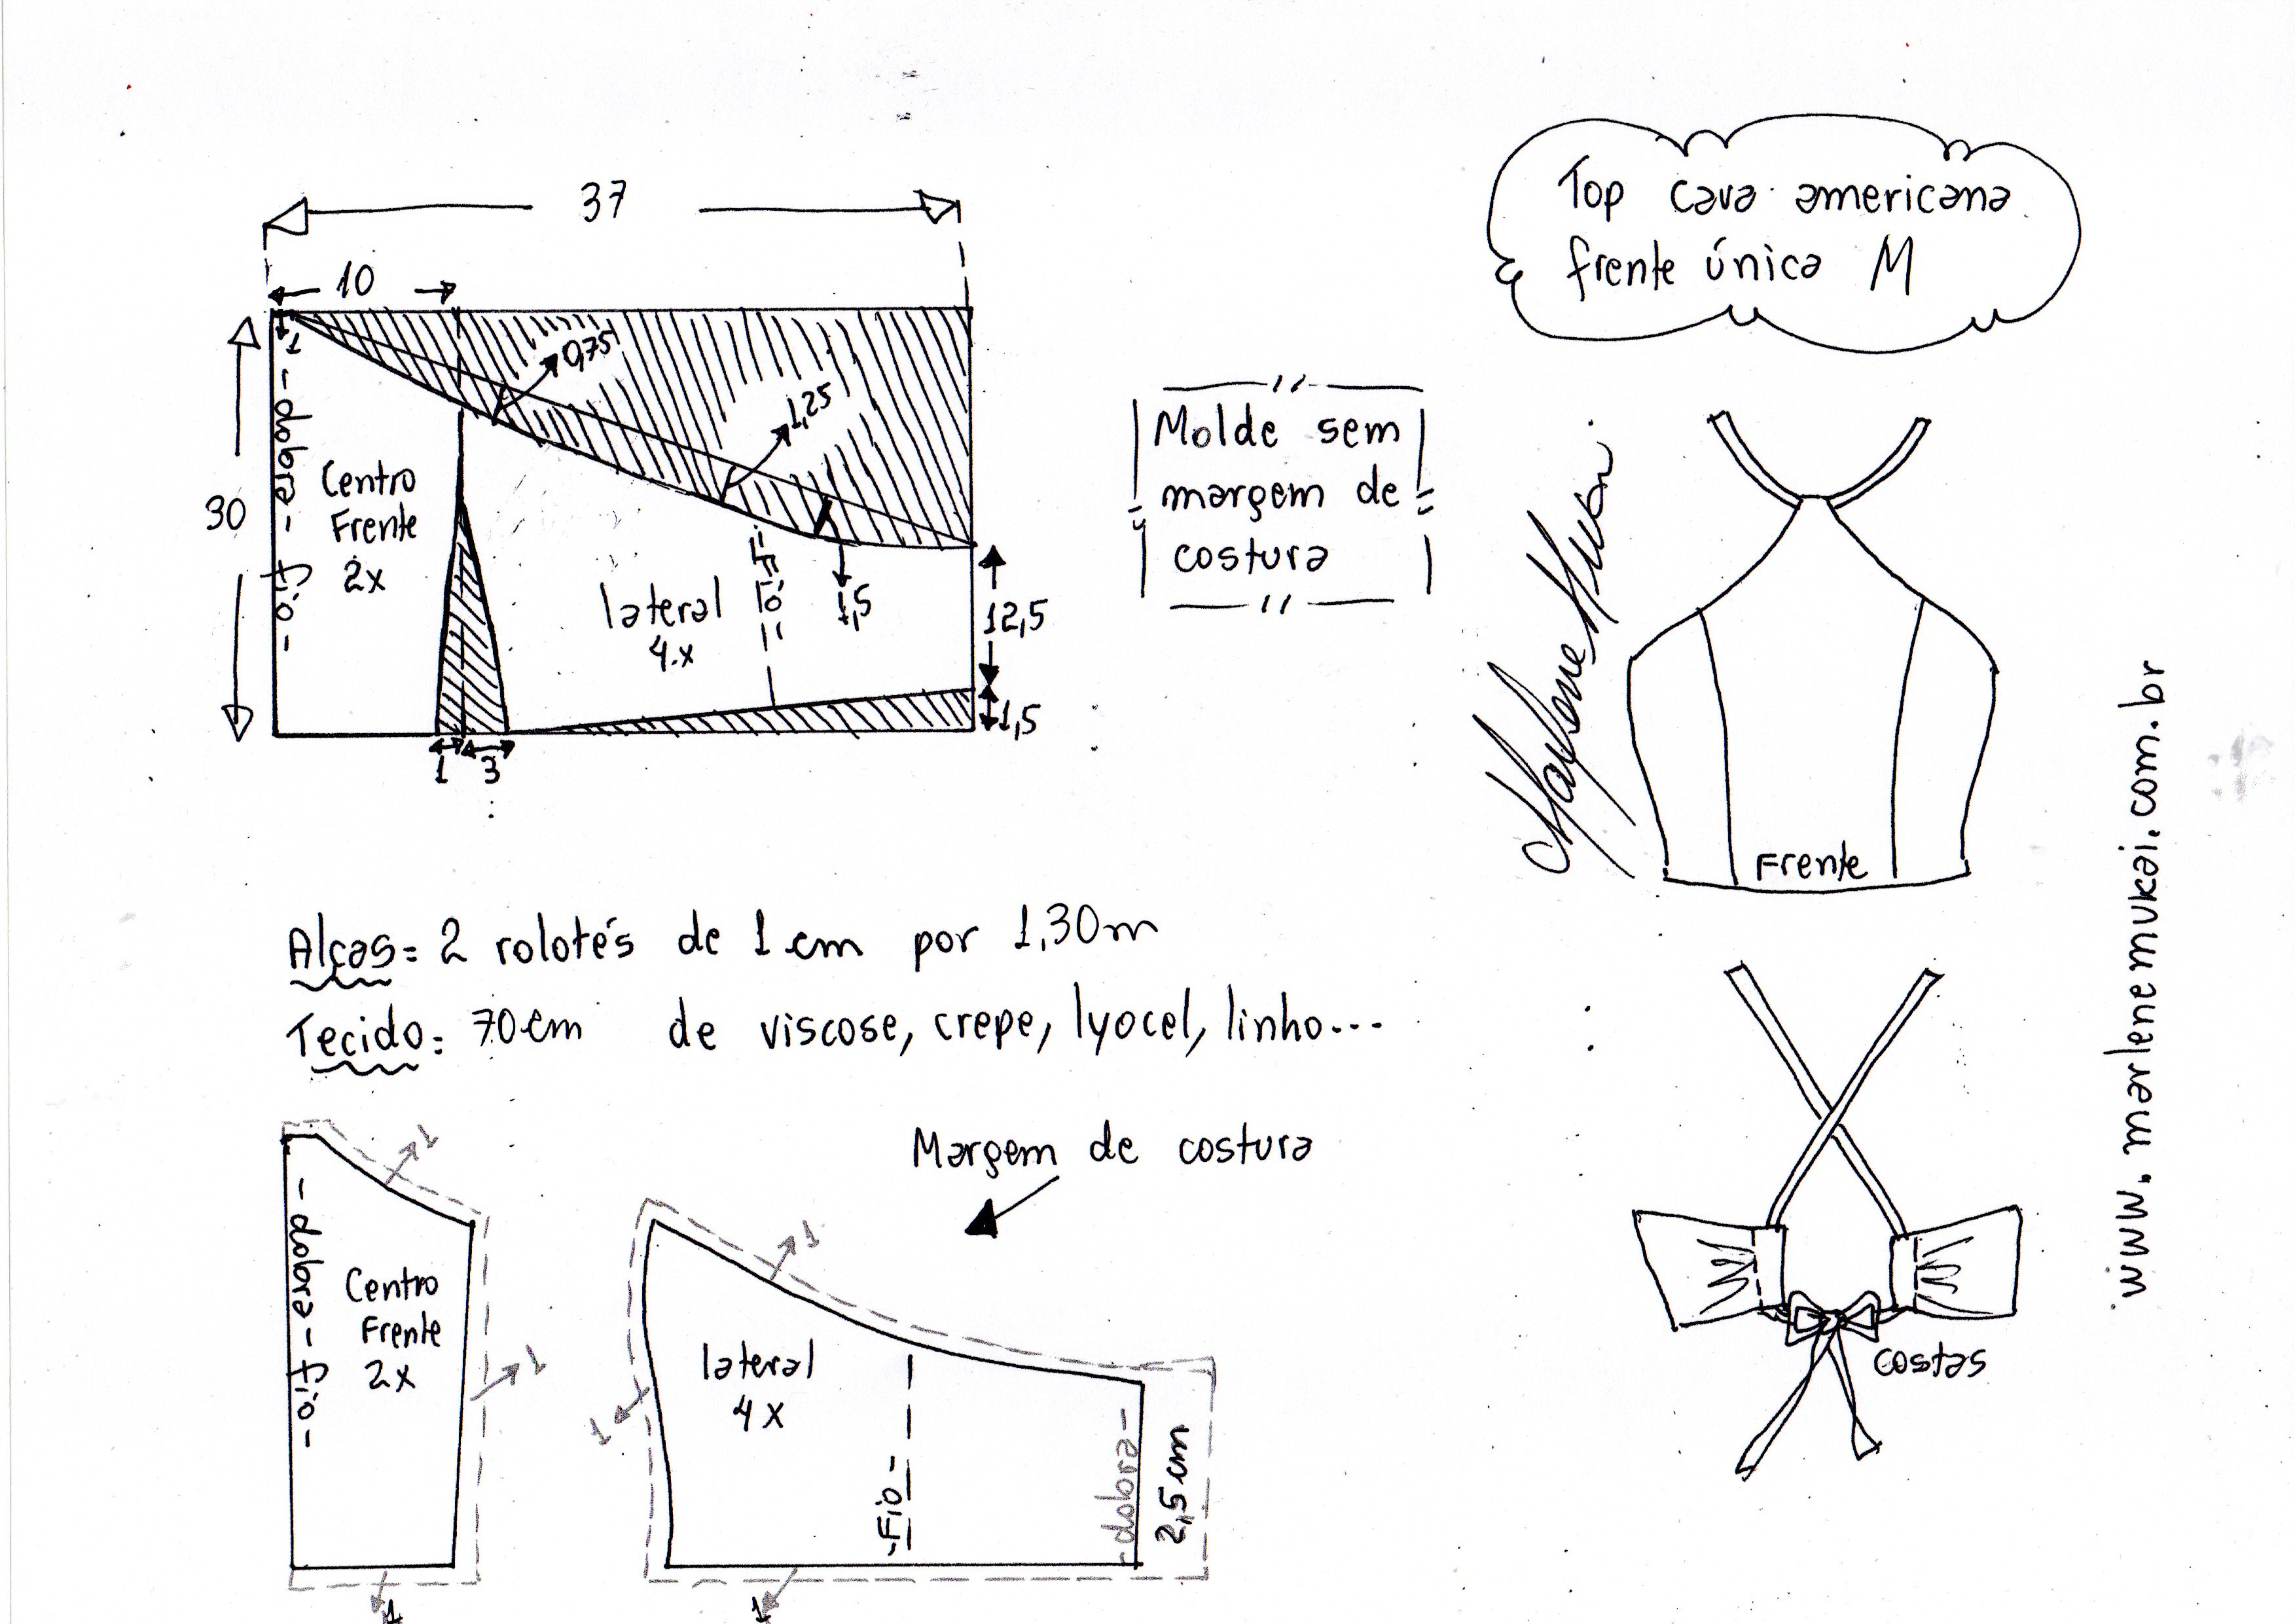 Top cava americana
frente única M
37
10
1
0,75
1,25
30
- dobra - fio -
Centro
Frente
2x
lateral
4x
- Fio -
1,5
12,5
1,5
1
3
Molde sem
margem de
costura
Marlene Mukai
Frente
www.marlenemukai.com.br
Alças = 2 rolotês de 1 cm por 1,30m
Tecido: 70 cm de viscose, crepe, lyocel, linho...
Margem de costura
1
- dobra - fio -
Centro
Frente
2x
1
1
1
lateral
4x
1
- Fio -
- dobra -
2,5 cm
1
costas